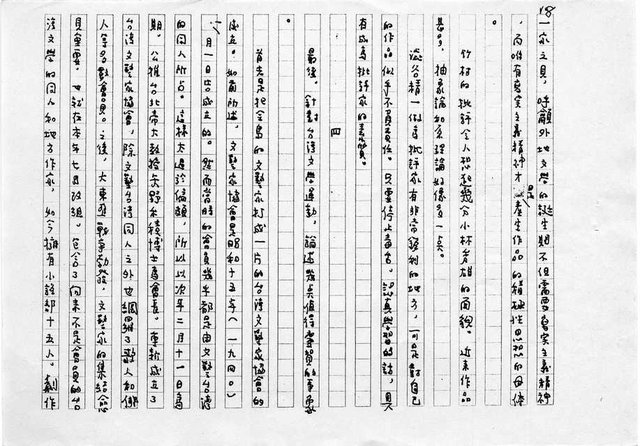 18
一家之見，呼籲外地文學的誕生期不但需要寫實主義精神
，而唯有寫實主義精神才是產生作品的積極性思想的母體
。
竹村的批評令人想起幾分小林秀雄的面貌。近來作品
甚多，抽象論如多理論好像多一點。
澁谷精一做為批評家有非常銳利的地方，可是對自己
的作品似乎不負責任。只要停止毒舌，認真學習的話，具
有成為批評家的素質。
四
最後，針對台灣文學運動，論述幾點值得審質的事勇敢
。
首先是把全島的文藝家打成一片的台灣文藝家協會的
成立。如前所述，文藝家協會是昭和十五年（一九四〇）
一月一日告成立的。然而當時的會員幾乎都是由文藝台灣
的同人所占。這樣太過於偏頗，所以次年二月十一日為
期，公推台北帝大教授矢野禾積博士為會長，重新成立了
台灣文藝家協會，除文藝台灣同人之外也網羅了歌人和俳
人等多數會員。之後，大東亞戰爭勃發，文藝家的集結愈
具重要，也就在本年七月改組。包含了向來不是會員的台
灣文學的同人和地方作家，如今擁有小說部十五人，劇作